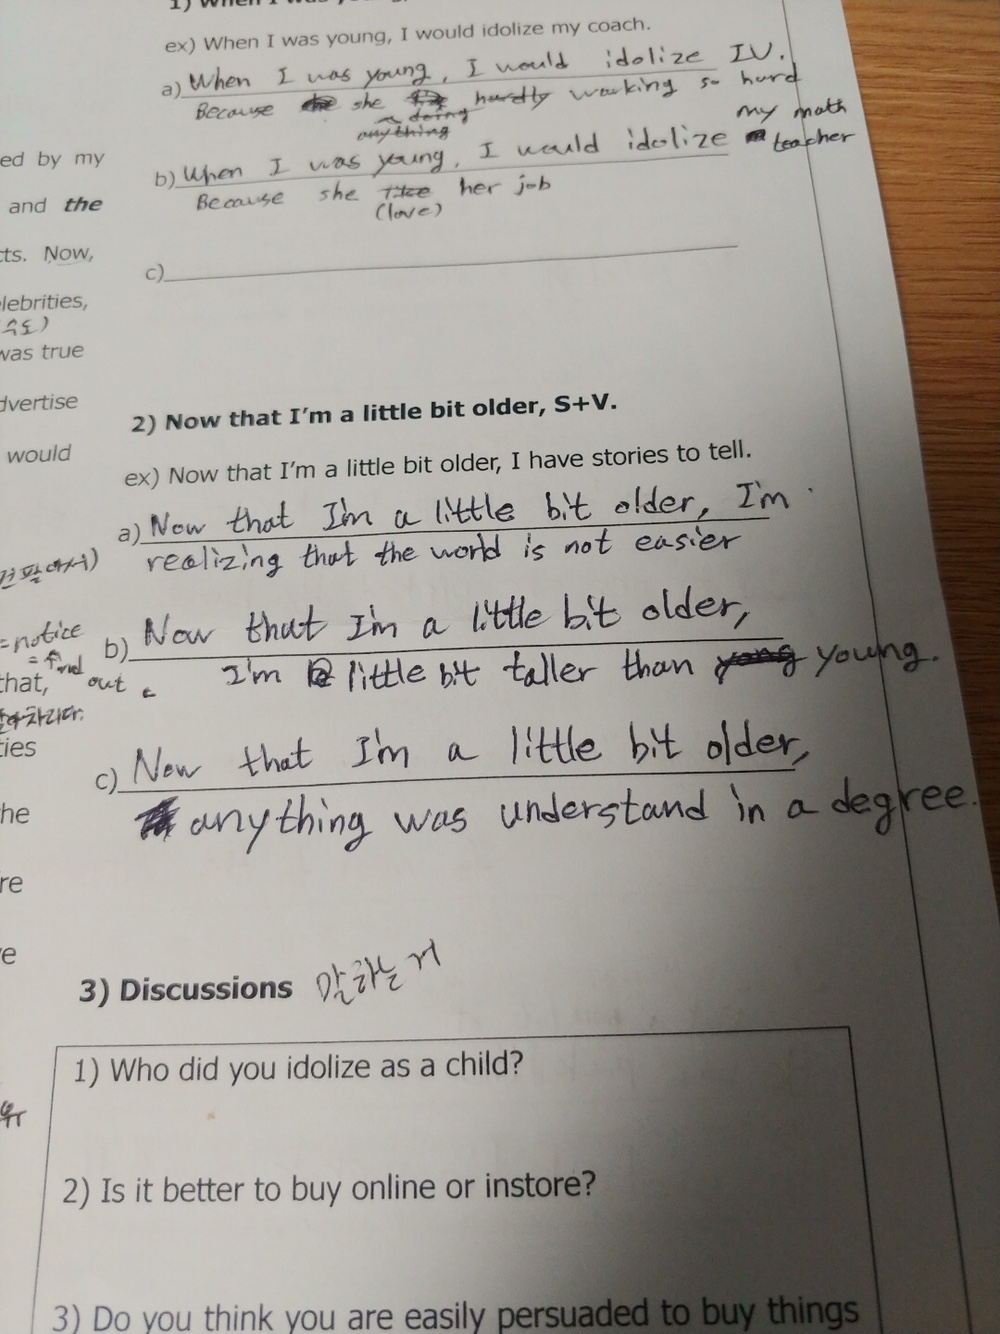 ex) When I was young, I would idolize my coach.
a) When I was young, I would idolize IU.
Because she hardly working so hard
a doing
anything
my math
b) When I was young, I would idolize teacher
Because she like her job
(love)
c)
2) Now that I'm a little bit older, S+V.
ex) Now that I'm a little bit older, I have stories to tell.
a) Now that I'm a little bit older, I'm
realizing that the world is not easier
b) Now that I'm a little bit older,
I'm little bit taller than yong young.
c) Now that I'm a little bit older,
anything was understand in a degree.
3) Discussions 말하는 거
1) Who did you idolize as a child?
2) Is it better to buy online or instore?
3) Do you think you are easily persuaded to buy things
ed by my
and the
cts. Now,
lebrities,
was true
dvertise
would
= notice
= find
that, out
ties
he
re
e